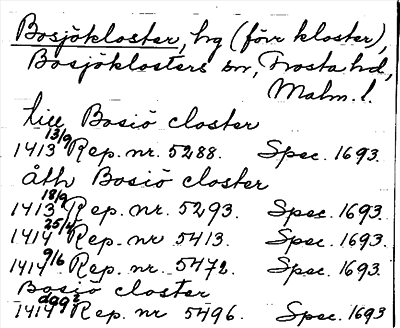 Bosjökloster, hg (förr kloster),
Bosjöklosters sn, Frosta hd,
Malm. l.
till Bosiö closter
1413 13/9 Rep. nr. 5288. Spec. 1693.
åth Bosiö closter
1413 18/9 Rep. nr. 5293. Spec. 1693.
1414 25/4 Rep. nr 5413. Spec. 1693.
1414 9/6 Rep. nr. 5472. Spec. 1693.
Bosiö closter
1414 Rep. nr. 5496. Spec. 1693